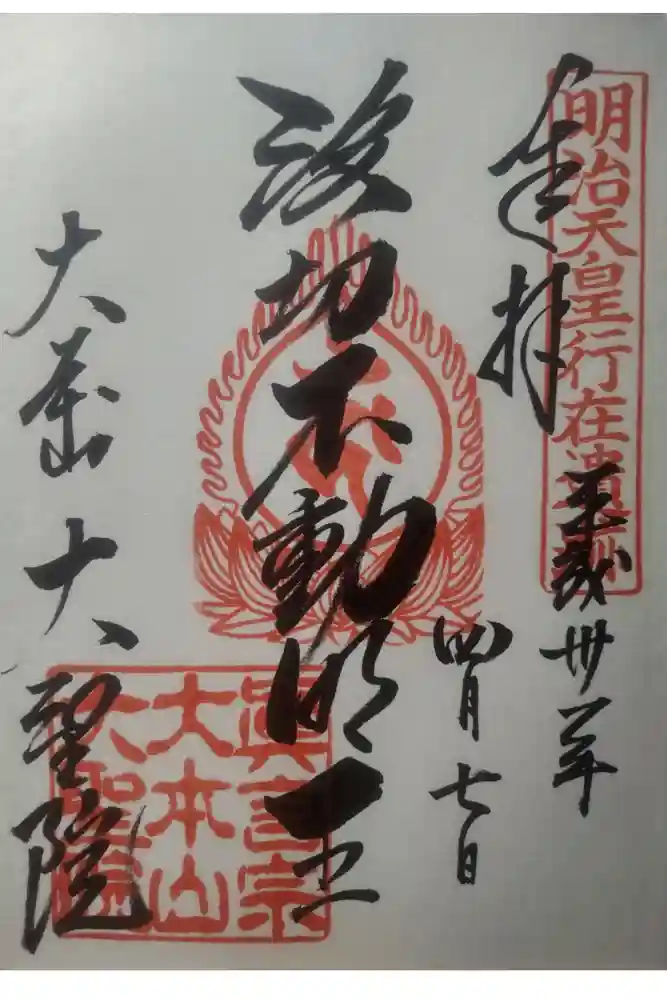 明治天皇行在遺
奉拝
平成卅年
四月七日
波切不動明王
大本山 大聖院
眞言宗
大本山
大聖院